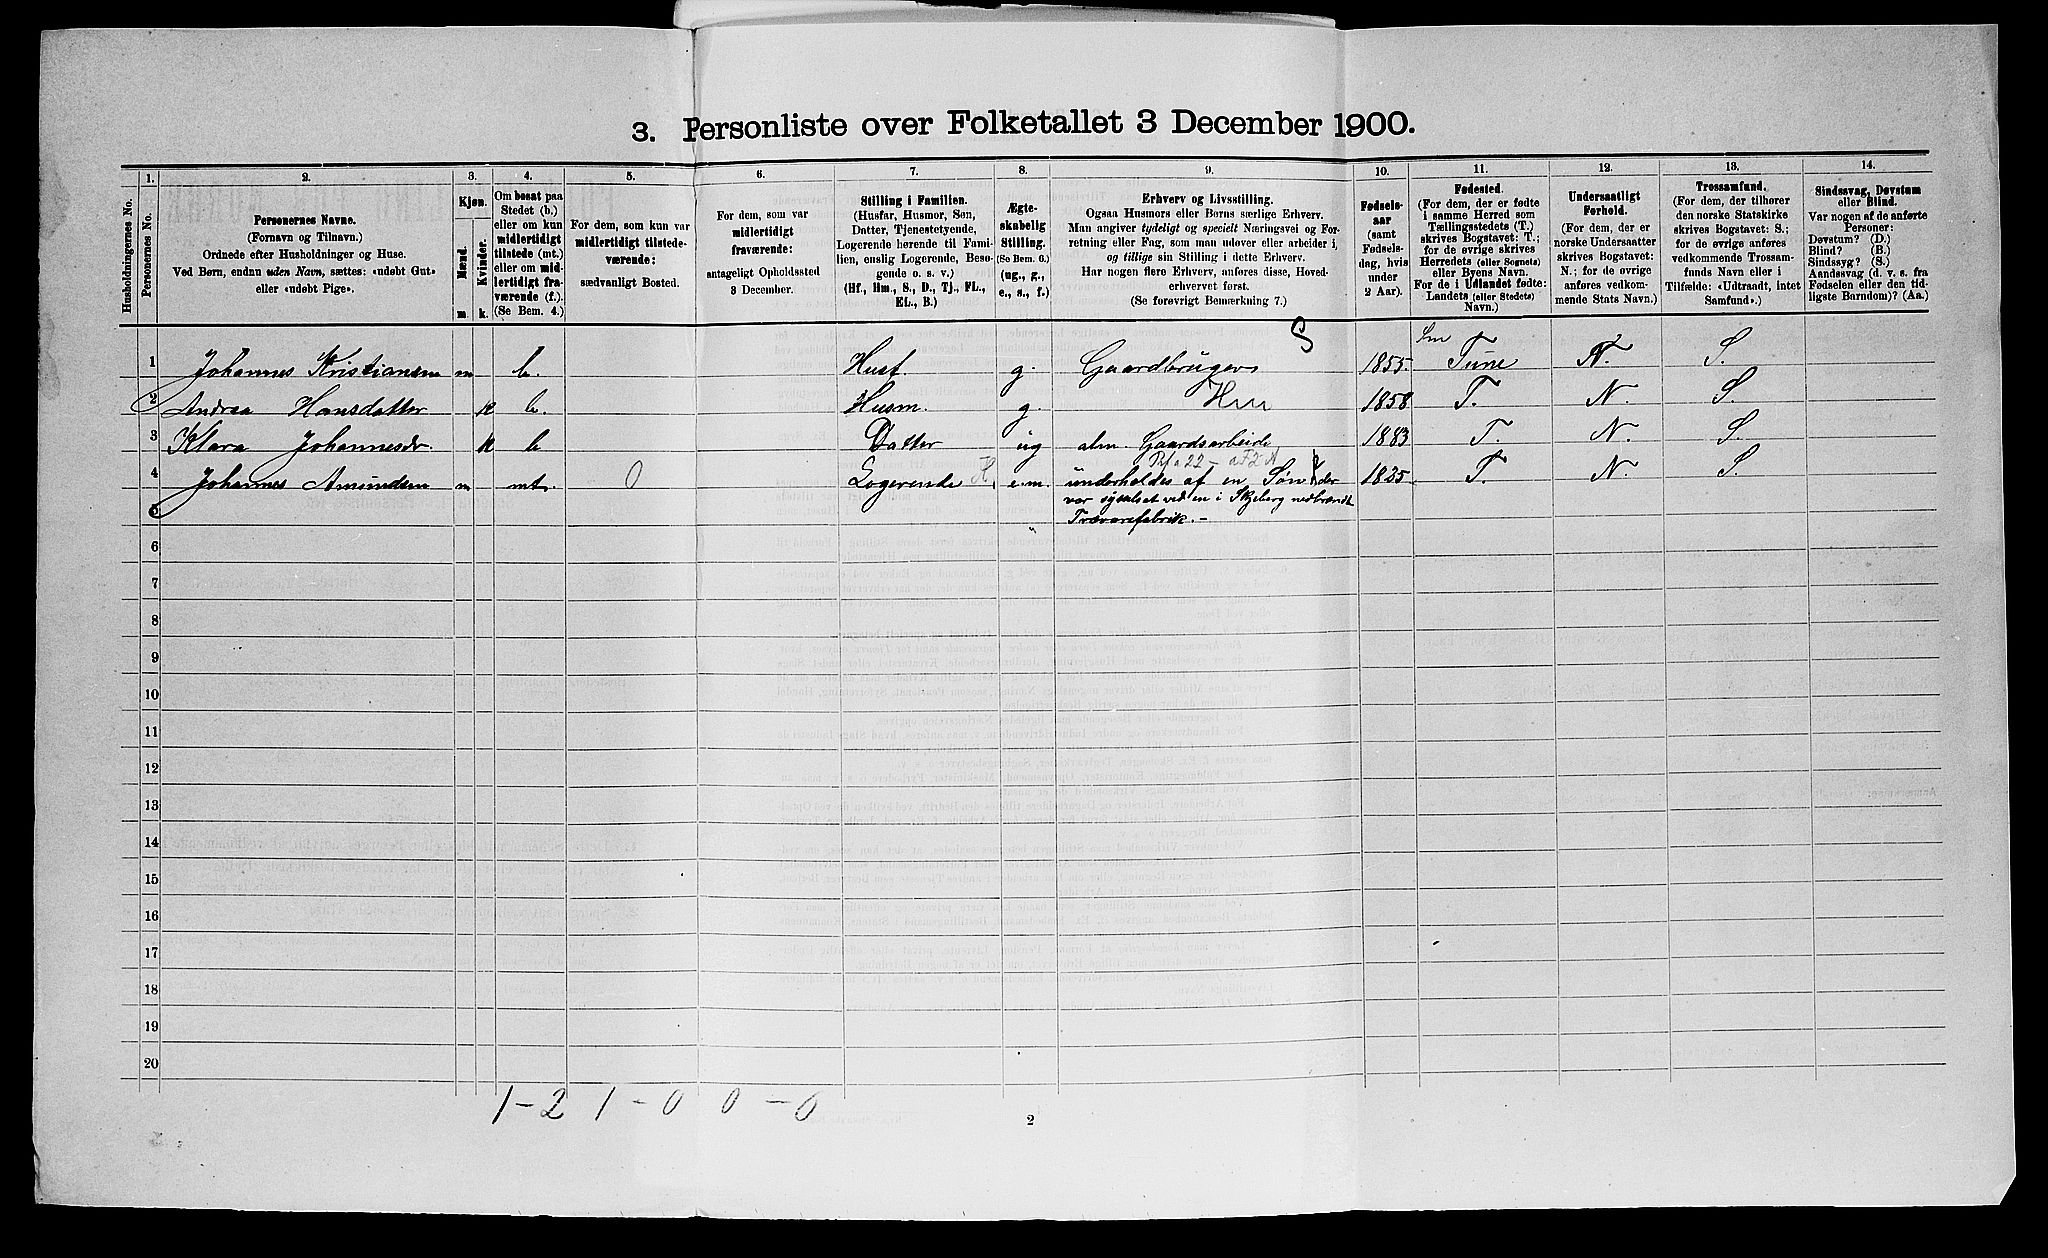 3. Personliste over Folketallet 3 December 1900.
Husholdningernes No.
1.
Personernes No.
2.
Personernes Navne.
(Fornavn og Tilnavn.)
Ordnede efter Husholdninger og Huse.
Ved Børn, endnu uden Navn, sættes: «udøbt Gut»
eller «udøbt Pige».
3.
Kjøn.
Mænd.
Kvinder.
m. k.
4.
Om bosat paa
Stedet (b.)
eller om kun
midlertidigt
tilstede (mt.)
eller om mid-
lertidigt fra-
værende (f.).
(Se Bem. 4.)
5.
For dem, som kun var
midlertidigt tilstede-
værende:
sædvanligt Bosted.
6.
For dem, som var
midlertidigt
fraværende:
antageligt Opholdssted
3 December.
7.
Stilling i Familien.
(Husfar, Husmor, Søn,
Datter, Tjenestetyende,
Logerende hørende til Fami-
lien, enslig Logerende, Besø-
gende o. s. v.)
(Hf., Hm., S., D., Tj., FL.,
EL., B.)
8.
Ægte-
skabelig
Stilling.
(Se Bem. 6.)
(ug., g.,
e., s., f.)
9.
Erhverv og Livsstilling.
Ogsaa Husmors eller Børns særlige Erhverv.
Man angiver tydeligt og specielt Næringsvei og For-
retning eller Fag, som man udøver eller arbeider i,
og tillige sin Stilling i dette Erhverv.
Har nogen flere Erhverv, anføres disse, Hoved-
erhvervet først.
(Se forøvrigt Bemærkning 7.)
10.
Fødsels-
aar
(samt
Fødsels-
dag, hvis
under
2 Aar).
11.
Fødested.
(For dem, der er fødte
i samme Herred som
Tællingsstedets (T.)
skrives Bogstavet: T.;
for de øvrige skrives
Herredets (eller Sognets)
eller Byens Navn.
For de i Udlandet fødte:
Landets (eller Stedets)
Navn.)
12.
Undersaatligt
Forhold.
(For dem, der er
norske Undersaatter
skrives Bogstavet:
N.; for de øvrige
anføres vedkom-
mende Stats Navn.)
13.
Trossamfund.
(For dem, der tilhører
den norske Statskirke
skrives Bogstavet: S.;
for de øvrige anføres
vedkommende Trossam-
funds Navn eller i
Tilfælde: «Udtraadt, intet
Samfund».)
14.
Sindssvag, Døvstum
eller Blind.
Var nogen af de anførte
Personer:
Døvstum? (D.)
Blind? (B.)
Sindssyg? (S.)
Aandssvag (d. v. s. fra
Fødselen eller den tid-
ligste Barndom)? (Aa.)
S
1 Johannes Kristiansen m b. Husf g. Gaardbruger 1855. Tune N. S.
2 Andrea Hansdatter k b. Husm. g. Hm 1858 T. N. S
3 Klara Johannesdr. k b Datter ug alm. Gaardsarbeide 1883 T. N. S.
4 Johannes Amundsen m mt. 0 Logerende e.m. underholdes af en Søn der 1825. T. N. S
var sysselsat ved en i Skjeberg nedbrændt
5 Trævarefabrik. -
6
7
8
9
10
11
12
13
14
15
16
17
18
19
20
1 - 2 1 - 0 0 - 0
2